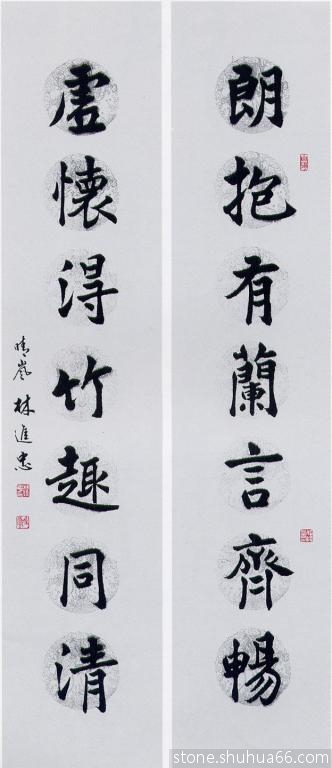 朗抱有蘭言齊暢
虛懷得竹趣同清
晴嵐 林進忠
stone.shuhua66.com